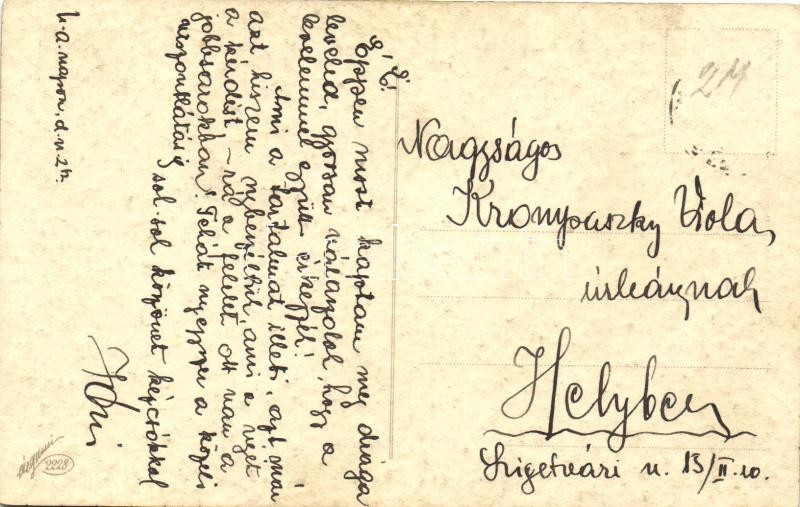 U. a. napon, d. u. 2h.
É. É.
Éppen most kaptam meg drága
leveled, gyorsan válaszolok, hogy a
leveleimmel együtt érkezzék!
Ami a tartalmát illeti, azt már
azt hiszem megbeszéltük, ami a végét
a kérdést – rá a felelet ott van a
jobbsarokban! Tehát nyugszom a közeli
viszontlátásig
sok-sok köszönet kézcsókkal
24
Nagyságos
Krompaszky Viola
úrleánynak
Helyben
Szigetvári u. 13/II. 10.
2228